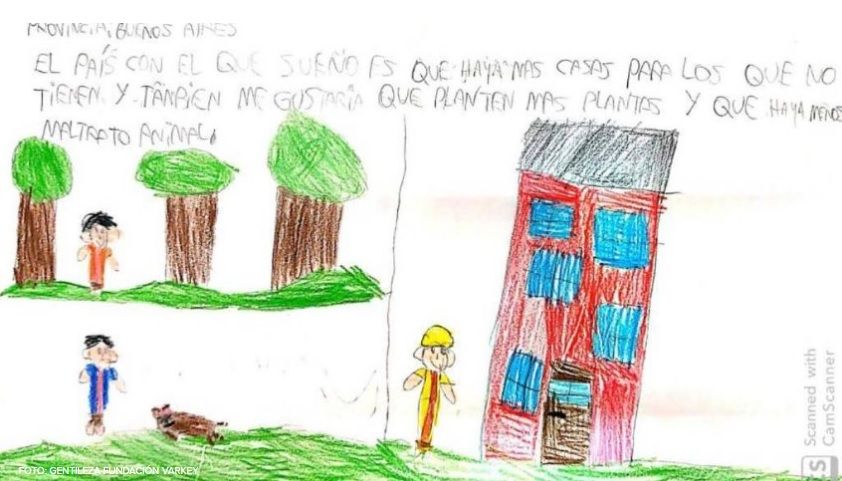 PROVINCIA, BUENOS AIRES
EL PAÍS CON EL QUE SUEÑO ES QUE HAYA MAS CASAS PARA LOS QUE NO
TIENEN. Y TANBIEN ME GUSTARIA QUE PLANTEN MAS PLANTAS Y QUE HAYA MENOS
MALTRATO ANIMAL.
FOTO: GENTILEZA FUNDACIÓN VARKEY
Scanned with
CamScanner
CS